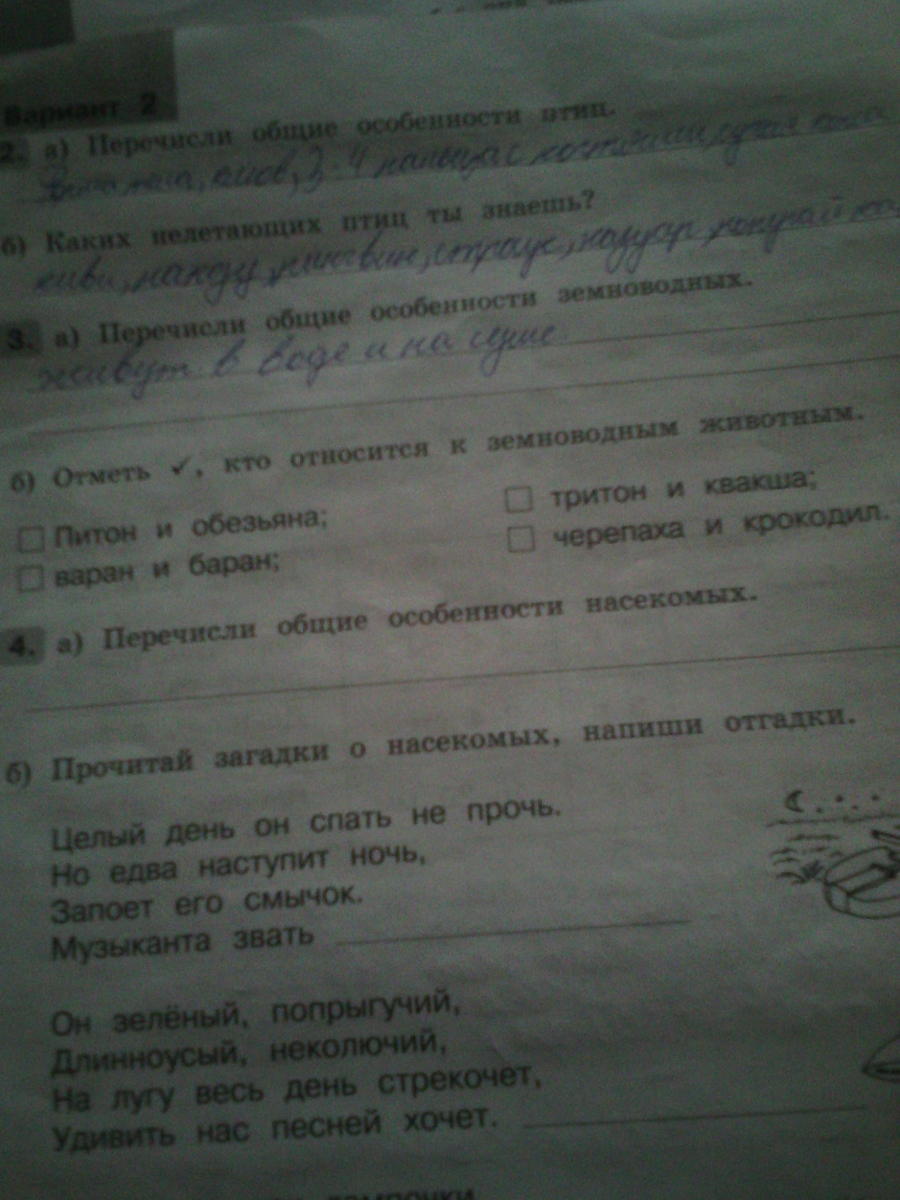 Вариант 2
2. а) Перечисли общие особенности птиц.
клюв, 3-4 пальца с когтями, сухая кожа
б) Каких нелетающих птиц ты знаешь?
киви, нанду, пингвин, страус, казуар, попугай
3. а) Перечисли общие особенности земноводных.
живут в воде и на суше.
б) Отметь ✓, кто относится к земноводным животным.
☐ Питон и обезьяна; ☐ тритон и квакша;
☐ варан и баран; ☐ черепаха и крокодил.
4. а) Перечисли общие особенности насекомых.
б) Прочитай загадки о насекомых, напиши отгадки.
Целый день он спать не прочь.
Но едва наступит ночь,
Запоет его смычок.
Музыканта звать
Он зелёный, попрыгучий,
Длинноусый, неколючий,
На лугу весь день стрекочет,
Удивить нас песней хочет.